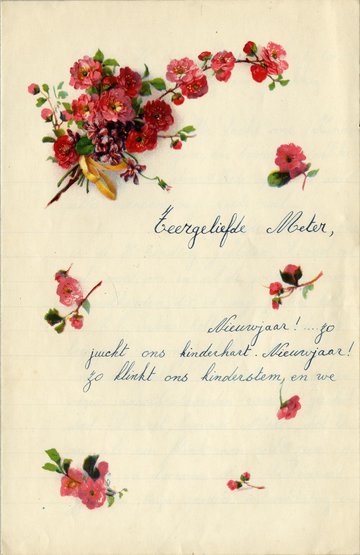 Teergeliefde Meter,
Nieuwjaar! ... zo
juicht ons kinderhart. Nieuwjaar!
Zo klinkt ons kinderstem, en we